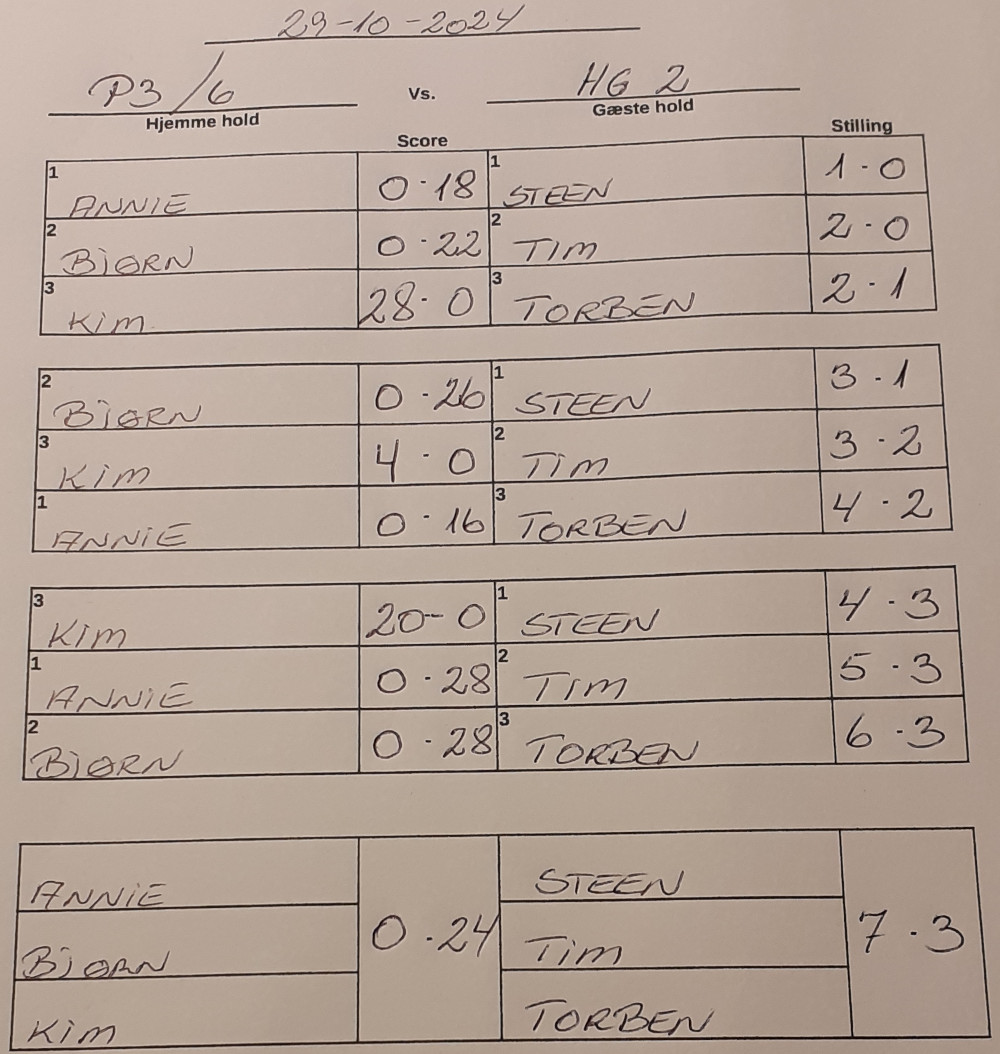 29-10-2024
P3/6 Vs. HG 2
Hjemme hold Gæste hold
Score Stilling
1 ANNIE 0·18 1 STEEN 1-0
2 BJØRN 0·22 2 TIM 2-0
3 KIM 28-0 3 TORBEN 2-1
2 BJØRN 0·26 1 STEEN 3-1
3 KIM 4-0 2 TIM 3-2
1 ANNIE 0·16 3 TORBEN 4-2
3 KIM 20-0 1 STEEN 4-3
1 ANNIE 0·28 2 TIM 5-3
2 BJØRN 0·28 3 TORBEN 6-3
ANNIE STEEN
BJØRN 0·24 TIM 7·3
KIM TORBEN